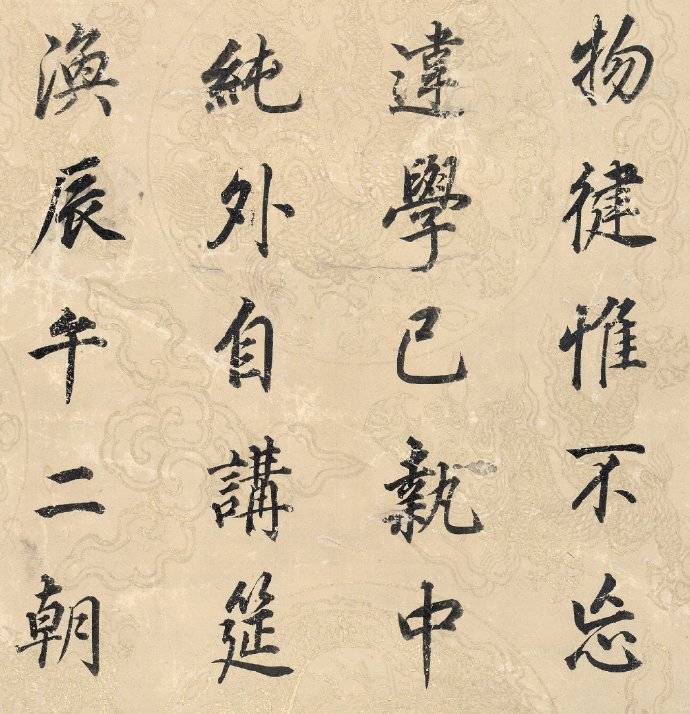 物律惟不忘
違學已執中
純外自講筵
渙辰午二朝